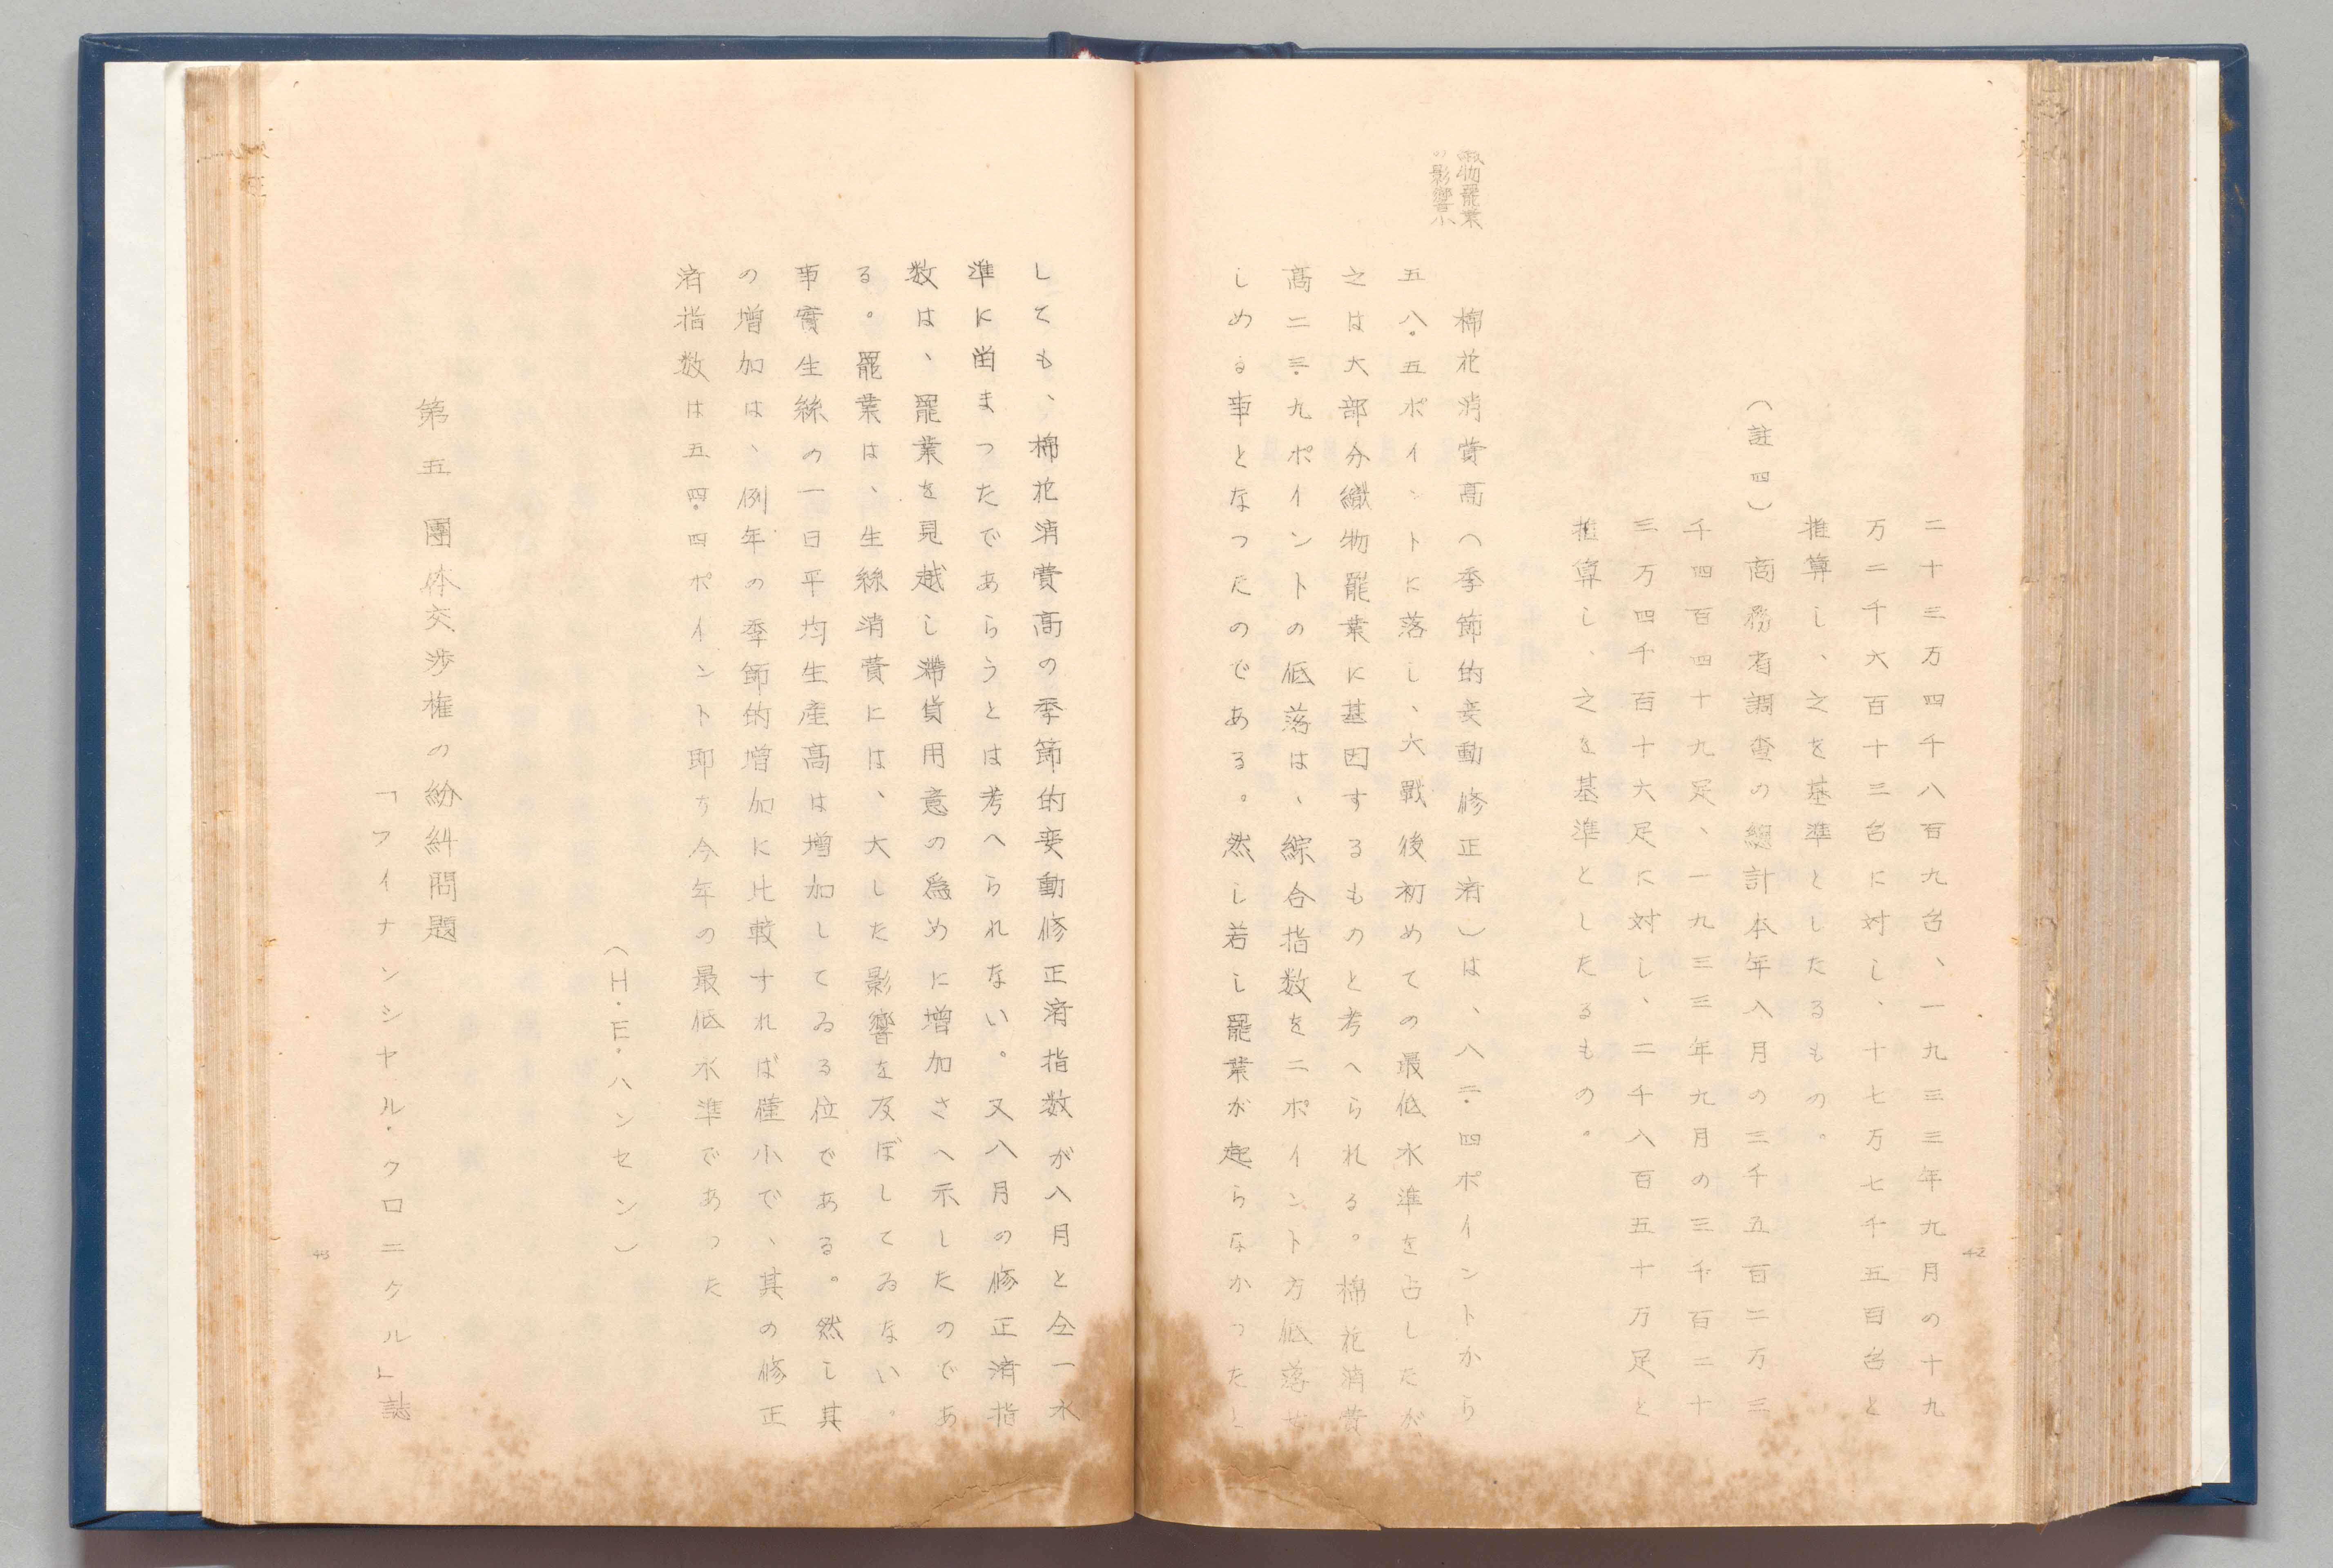 二十三万四千八百九台、一九三三年九月の十九
万二千六百十三台に対し、十七万七千五百台と
推算し、之を基準としたるもの。
（註四）商務省調査の総計本年八月の三千五百二万三
千四百四十九足、一九三三年九月の三千百二十
三万四千百十六足に対し、二千八百五十万足と
推算し、之を基準としたるもの。
織物罷業
の影響小
棉花消費高（季節的変動修正済）は、八二・四ポイントから
五八・五ポイントに落し、大戰後初めての最低水準を占したが
之は大部分織物罷業に基因するものと考へられる。棉花消費
高二三・九ポイントの低落は、綜合指数を二ポイント方低落せ
しめる事となつたのである。然し若し罷業が起らなかつたと
42
しても、棉花消費高の季節的変動修正済指数が八月と仝一水
準に畄まつたであらうとは考へられない。又八月の修正済指
数は、罷業を見越し滞貨用意の為めに増加さへ示したのであ
る。罷業は、生絲消費には、大した影響を及ぼしてゐない。
事實生絲の一日平均生産高は増加してゐる位である。然し其
の増加は、例年の季節的増加に比較すれば僅小で、其の修正
済指数は五四・四ポイント即ち今年の最低水準であつた
（H・E・ハンセン）
第五　團体交渉権の紛糾問題
「フイナンシヤル・クロニクル」誌
43